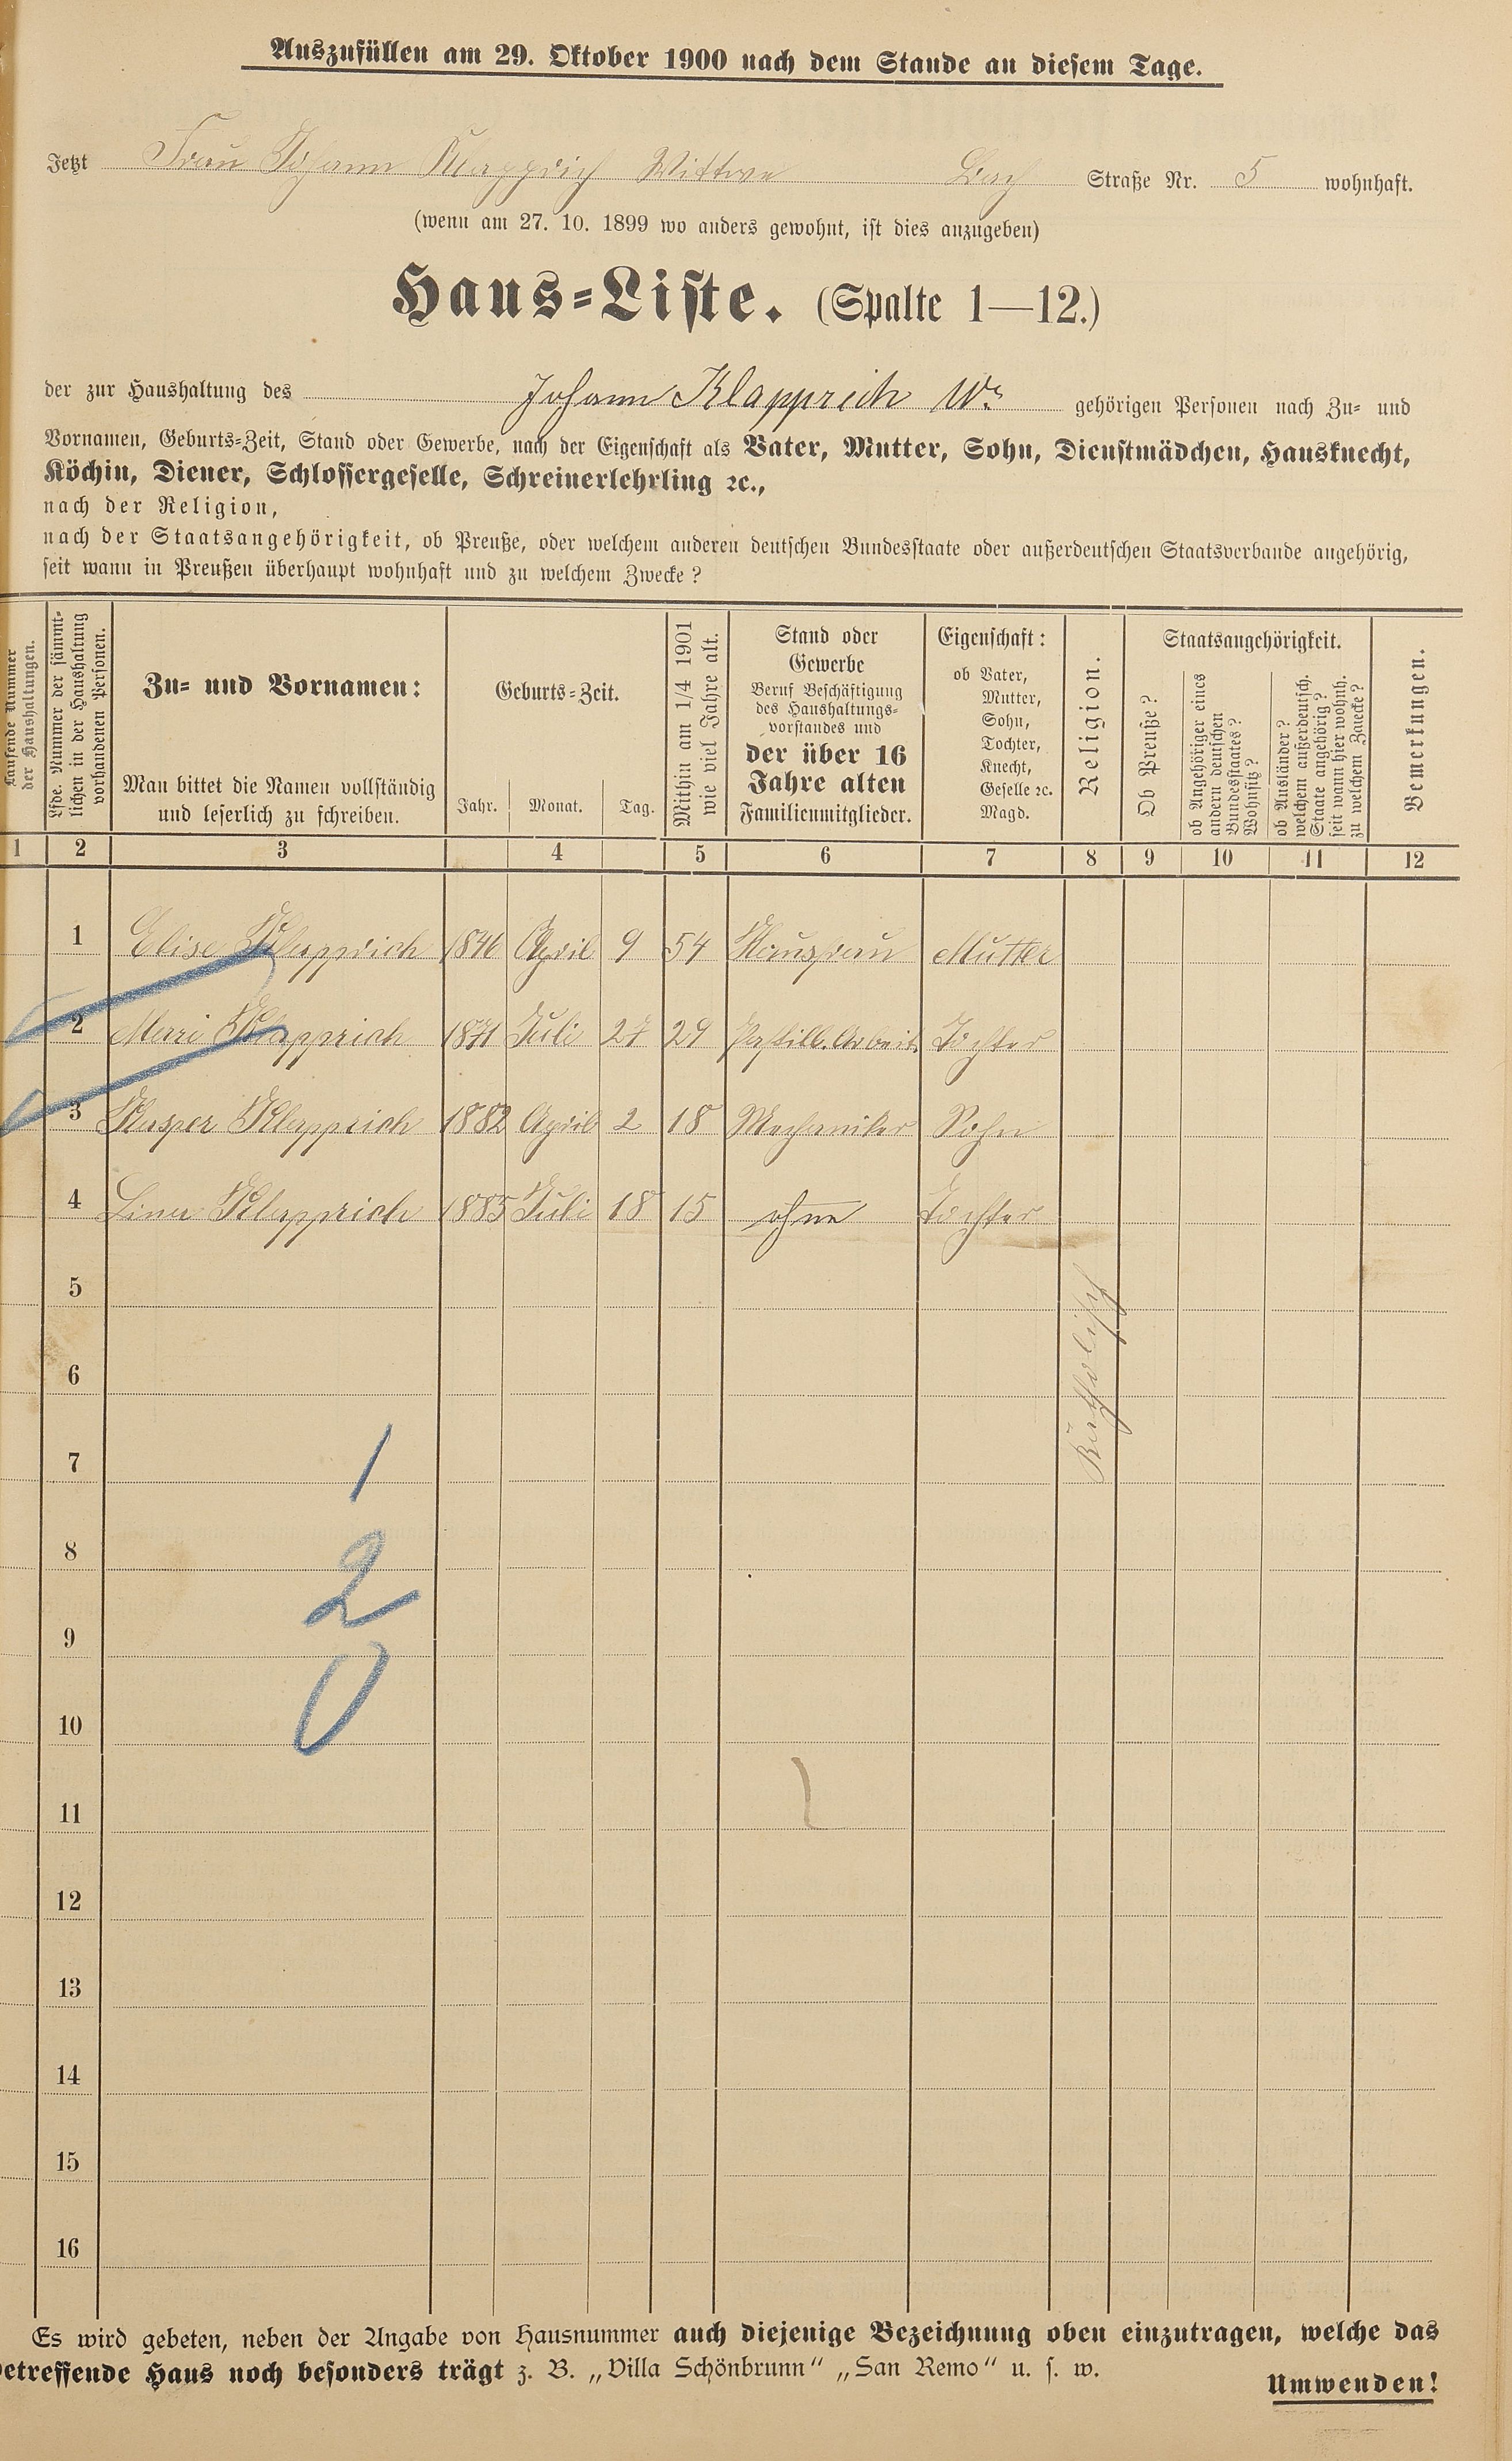 Auszufüllen am 29. Oktober 1900 nach dem Stande an diesem Tage.
Jetzt Frau Johann Klapprich Wittwe Bach Straße Nr. 5 wohnhaft.
(wenn am 27. 10. 1899 wo anders gewohnt, ist dies anzugeben)
Haus-Liste. (Spalte 1—12.)
der zur Haushaltung des Johann Klapprich We gehörigen Personen nach Zu- und
Vornamen, Geburts-Zeit, Stand oder Gewerbe, nach der Eigenschaft als Vater, Mutter, Sohn, Dienstmädchen, Hausknecht,
Köchin, Diener, Schlossergeselle, Schreinerlehrling ꝛc.,
nach der Religion,
nach der Staatsangehörigkeit, ob Preuße, oder welchem anderen deutschen Bundesstaate oder außerdeutschen Staatsverbande angehörig,
seit wann in Preußen überhaupt wohnhaft und zu welchem Zwecke?
Laufende Nummer
der Haushaltungen.
Lfde. Nummer der sämmt-
lichen in der Haushaltung
vorhandenen Personen.
Zu- und Vornamen:
Man bittet die Namen vollständig
und leserlich zu schreiben.
Geburts-Zeit.
Jahr. Monat. Tag.
Mithin am 1/4 1901
wie viel Jahre alt.
Stand oder
Gewerbe
Beruf Beschäftigung
des Haushaltungs-
vorstandes und
der über 16
Jahre alten
Familienmitglieder.
Eigenschaft:
ob Vater,
Mutter,
Sohn,
Tochter,
Knecht,
Geselle ꝛc.
Magd.
Religion.
Staatsangehörigkeit.
Ob Preuße?
ob Angehöriger eines
andern deutschen
Bundesstaates?
Wohnsitz?
ob Ausländer?
welchem außerdeutsch.
Staate angehörig?
seit wann hier wohnh.
zu welchem Zwecke?
Bemerkungen.
1 2 3 4 5 6 7 8 9 10 11 12
1 Elise Klapprich 1846 April 9 54 Hausfrau Mutter
2 Marie Klapprich 1871 Juli 27 29 Pastill. Arbeit. Tochter
3 Kasper Klapprich 1882 April 2 18 Mechaniker Sohn
4 Lina Klapprich 1885 Juli 18 15 ohne Tochter
Katholisch
5
6
7
1
8
2
9
0
10
11
12
13
14
15
16
Es wird gebeten, neben der Angabe von Hausnummer auch diejenige Bezeichnung oben einzutragen, welche das
betreffende Haus noch besonders trägt z. B. „Villa Schönbrunn“ „San Remo“ u. s. w.
Umwenden!